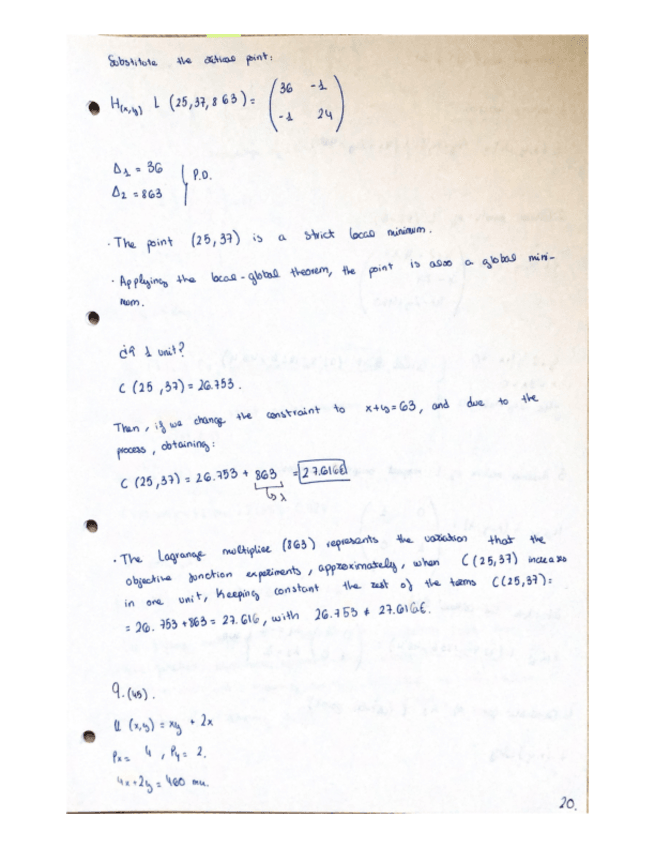 Substitute the critical point:
H(x,y) L (25,37,863) = ( 36 -1
-1 24 )
Δ1 = 36
Δ2 = 863 } P.D.
· The point (25,37) is a strict local minimum.
· Applying the local-global theorem, the point is also a global mini-
mum.
¿if 1 unit?
C (25,37) = 26.753.
Then, if we change the constraint to x+y=63, and due to the
process, obtaining:
C (25,37) = 26.753 + 863 = 27.616€
↳ λ
· The Lagrange multiplier (863) represents the variation that the
objective function experiments, approximately, when C(25,37) increases
in one unit, keeping constant the rest of the terms C(25,37) =
= 26.753 + 863 = 27.616, with 26.753 ≠ 27.616€.
9. (45).
U (x,y) = xy + 2x
Px = 4, Py = 2.
4x+2y = 460 mu.
20.